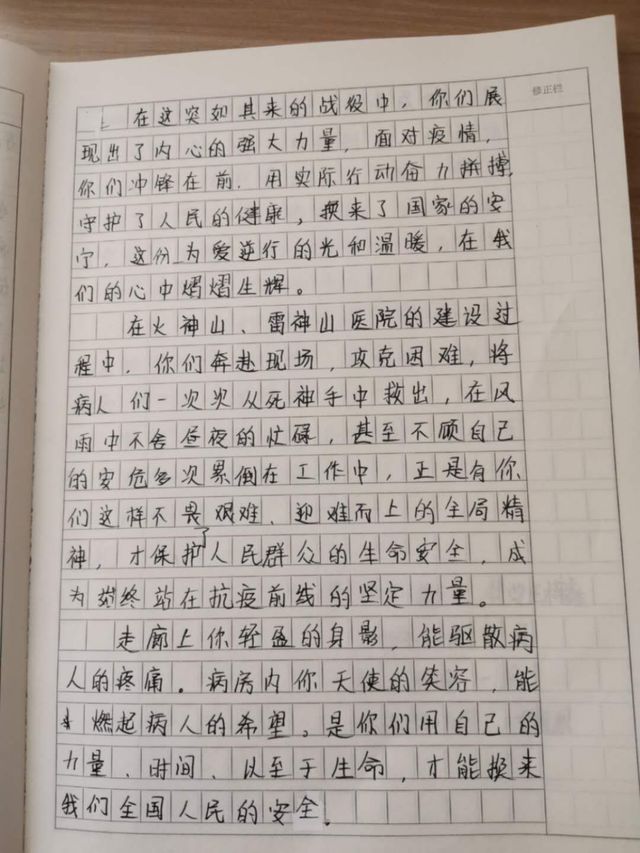 修正栏
在这突如其来的战役中，你们展
现出了内心的强大力量，面对疫情，
你们冲锋在前，用实际行动奋力拼搏，
守护了人民的健康，换来了国家的安
宁，这份为爱逆行的光和温暖，在我
们的心中熠熠生辉。
在火神山、雷神山医院的建设过
程中，你们奔赴现场，攻克困难，将
病人们一次次从死神手中救出，在风
雨中不舍昼夜的忙碍，甚至不顾自己
的安危多次累倒在工作中，正是有你
们这样不畏艰难、迎难而上的全局精
神，才保护人民群众的生命安全，成
为始终站在抗疫前线的坚定力量。
走廊上你轻盈的身影，能驱散病
人的疼痛。病房内你天使的笑容，能
燃起病人的希望。是你们用自己的
力量、时间、以至于生命，才能换来
我们全国人民的安全。